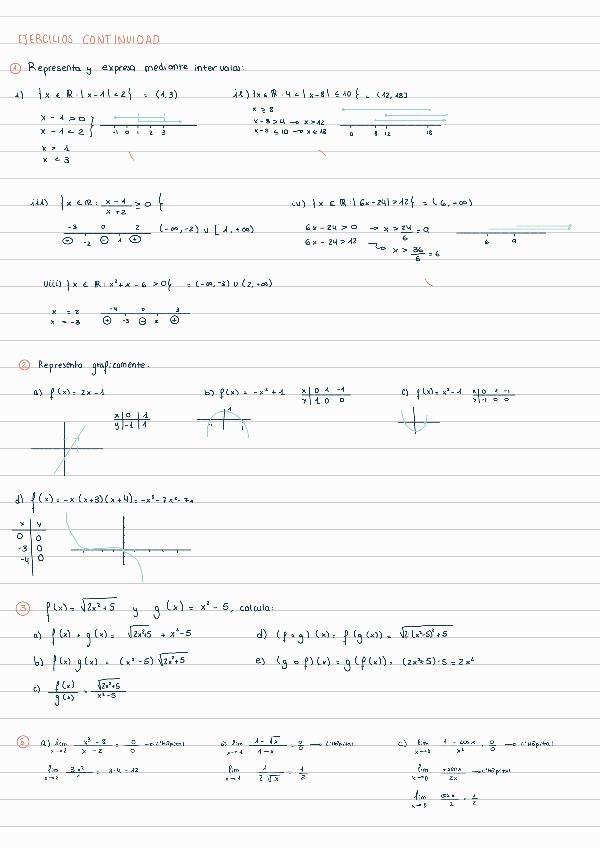 EJERCICIOS CONTINUIDAD
① Representa y expresa mediante intervalos:
i) {x ∈ ℝ : |x-1| < 2} = (1,3)
x - 1 > 0
x - 1 < 2
x > 1
x < 3
-1 0 1 2 3
ii) {x ∈ ℝ : 4 < |x-8| ≤ 10} = (12, 18]
x ≥ 8
x-8 > 4 → x > 12
x-8 ≤ 10 → x ≤ 18
0 8 12 18
iii) {x ∈ ℝ : (x-1)/(x+2) ≥ 0}
-3 0 2
⊕ -2 ⊖ 1 ⊕
(-∞, -2) ∪ [1, +∞)
iv) {x ∈ ℝ : |6x-24| > 12} = (6, -∞)
6x - 24 > 0 → x > 24/6 = 9
6x - 24 > 12 → x > 36/6 = 6
6 9
viii) {x ∈ ℝ : x² + x - 6 > 0} = (-∞, -3) ∪ (2, +∞)
x = 2
x = -3
-4 0 3
⊕ -3 ⊖ 2 ⊕
② Representa graficamente.
a) f(x) = 2x - 1
x 0 1
y -1 1
b) f(x) = -x² + 1
x 0 1 -1
y 1 0 0
c) f(x) = x² - 1
x 0 1 -1
y -1 0 0
d) f(x) = -x(x+3)(x+4) = -x³ - 7x² - 7x
x y
0 0
-3 0
-4 0
③ f(x) = √(2x²+5) y g(x) = x² - 5, calcula:
a) f(x) + g(x) = √(2x²+5) + x² - 5
d) (f∘g)(x) = f(g(x)) = √(2(x²-5)²+5)
b) f(x) g(x) = (x²-5) √(2x²+5)
e) (g∘f)(x) = g(f(x)) = (2x²+5) - 5 = 2x²
c) f(x)/g(x) = √(2x²+5)/(x²-5)
⑥ a) lim x→2 (x³-8)/(x-2) = 0/0 → L'Hôpital
lim x→2 3x²/1 = 3·4 = 12
b) lim x→1 (1-√x)/(1-x) = 0/0 → L'Hôpital
lim x→1 1/(2√x) = 1/2
c) lim x→0 (1-cos x)/x² = 0/0 → L'Hôpital
lim x→0 +sen x/2x → L'Hôpital
lim x→0 cos x/2 = 1/2